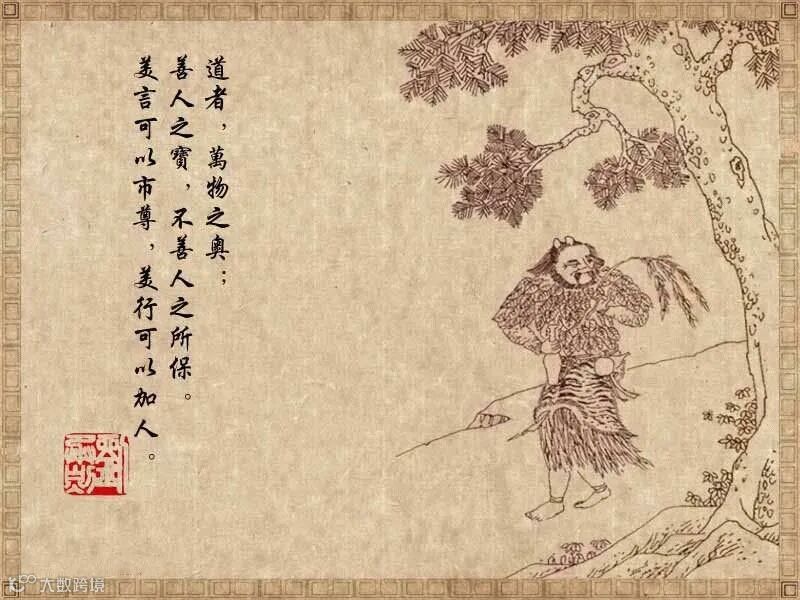 道者，萬物之奧；
善人之寶，不善人之所保。
美言可以市尊，美行可以加人。
大数跨境